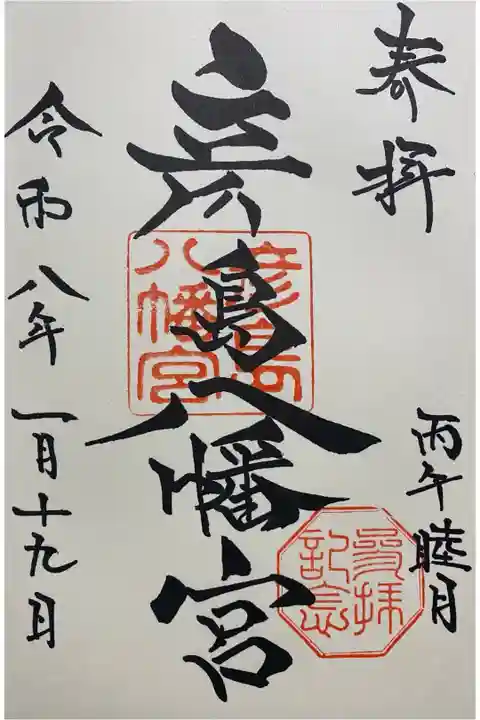 奉拝
丙午睦月
参拝
記念
彦島八幡宮
彦島
八幡宮
令和八年一月十九日